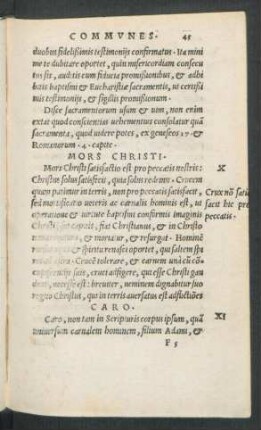 COMMVNES. 45
duobus fidelissimis testimonijs confirmatur. Ita mini
me te dubitare oportet, quin misericordiam consecu
tus sis, auditis eum futura promissionibus, & adhi
bitis baptismi & Eucharistiæ sacramentis, ut certissi
mis testimonijs, & sigillis promissionum.
Disce sacramentorum usum & uim, non enim
extat quod conscientias uehementius consolatur quã
sacramenta, quod uidere potes, ex geneseos 17. &
Romanorum 4. capite.
MORS CHRISTI.
Mors Christi satisfactio est pro peccatis nostris: X
Christus solus satisfecit, quia solus redemit. Crucem
quam patimur in terris, non pro peccatis satisfacit, Crux nõ satis
sed mortificatio ueteris ac carnalis hominis est, ut facit hic pro
operatione & uirtute baptismi conformis imaginis peccatis.
Christi, fiat Christianus, & in
& moriatur, & resurgat.
spiritu renasci oportet, qui
Crucẽ tolerare, & carnem unà cũ cõ
cruci affigere, qui esse Christi
est: breuiter, neminem dignabitur suo
regno Christus, qui in terris auersatus est afflictiões
CARO.
Caro, non tam in Scripturis corpus ipsum, quã XI
uniuersum carnalem hominem, filium Adami, &
F 5